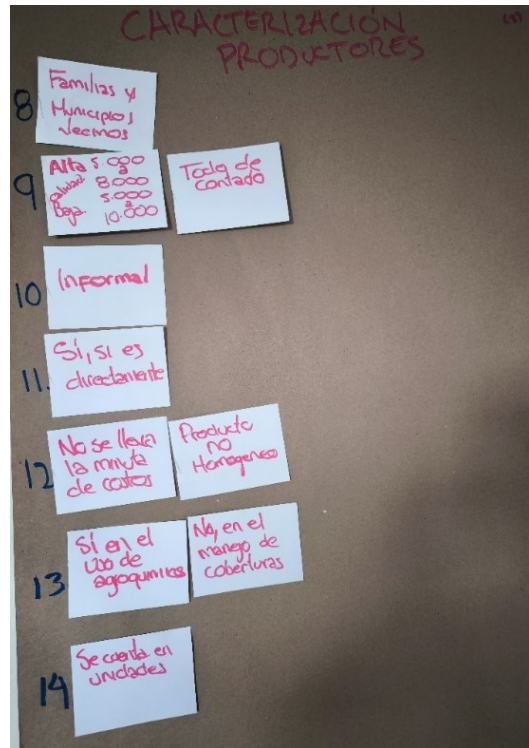 CARACTERIZACIÓN
PRODUCTORES
8
Familias y
Municipios
vecinos
9
Alta 5.000
a
calidad 8.000
5.000
Baja. a
10.000
Toda de
contado
10
Informal
11.
Sí, si es
directamente
12
No se lleva
la minuta
de costos
Producto
no
Homogeneo
13
Sí en el
uso de
agroquimicos
No, en el
mango de
coberturas
14
Se cuenta en
unidades